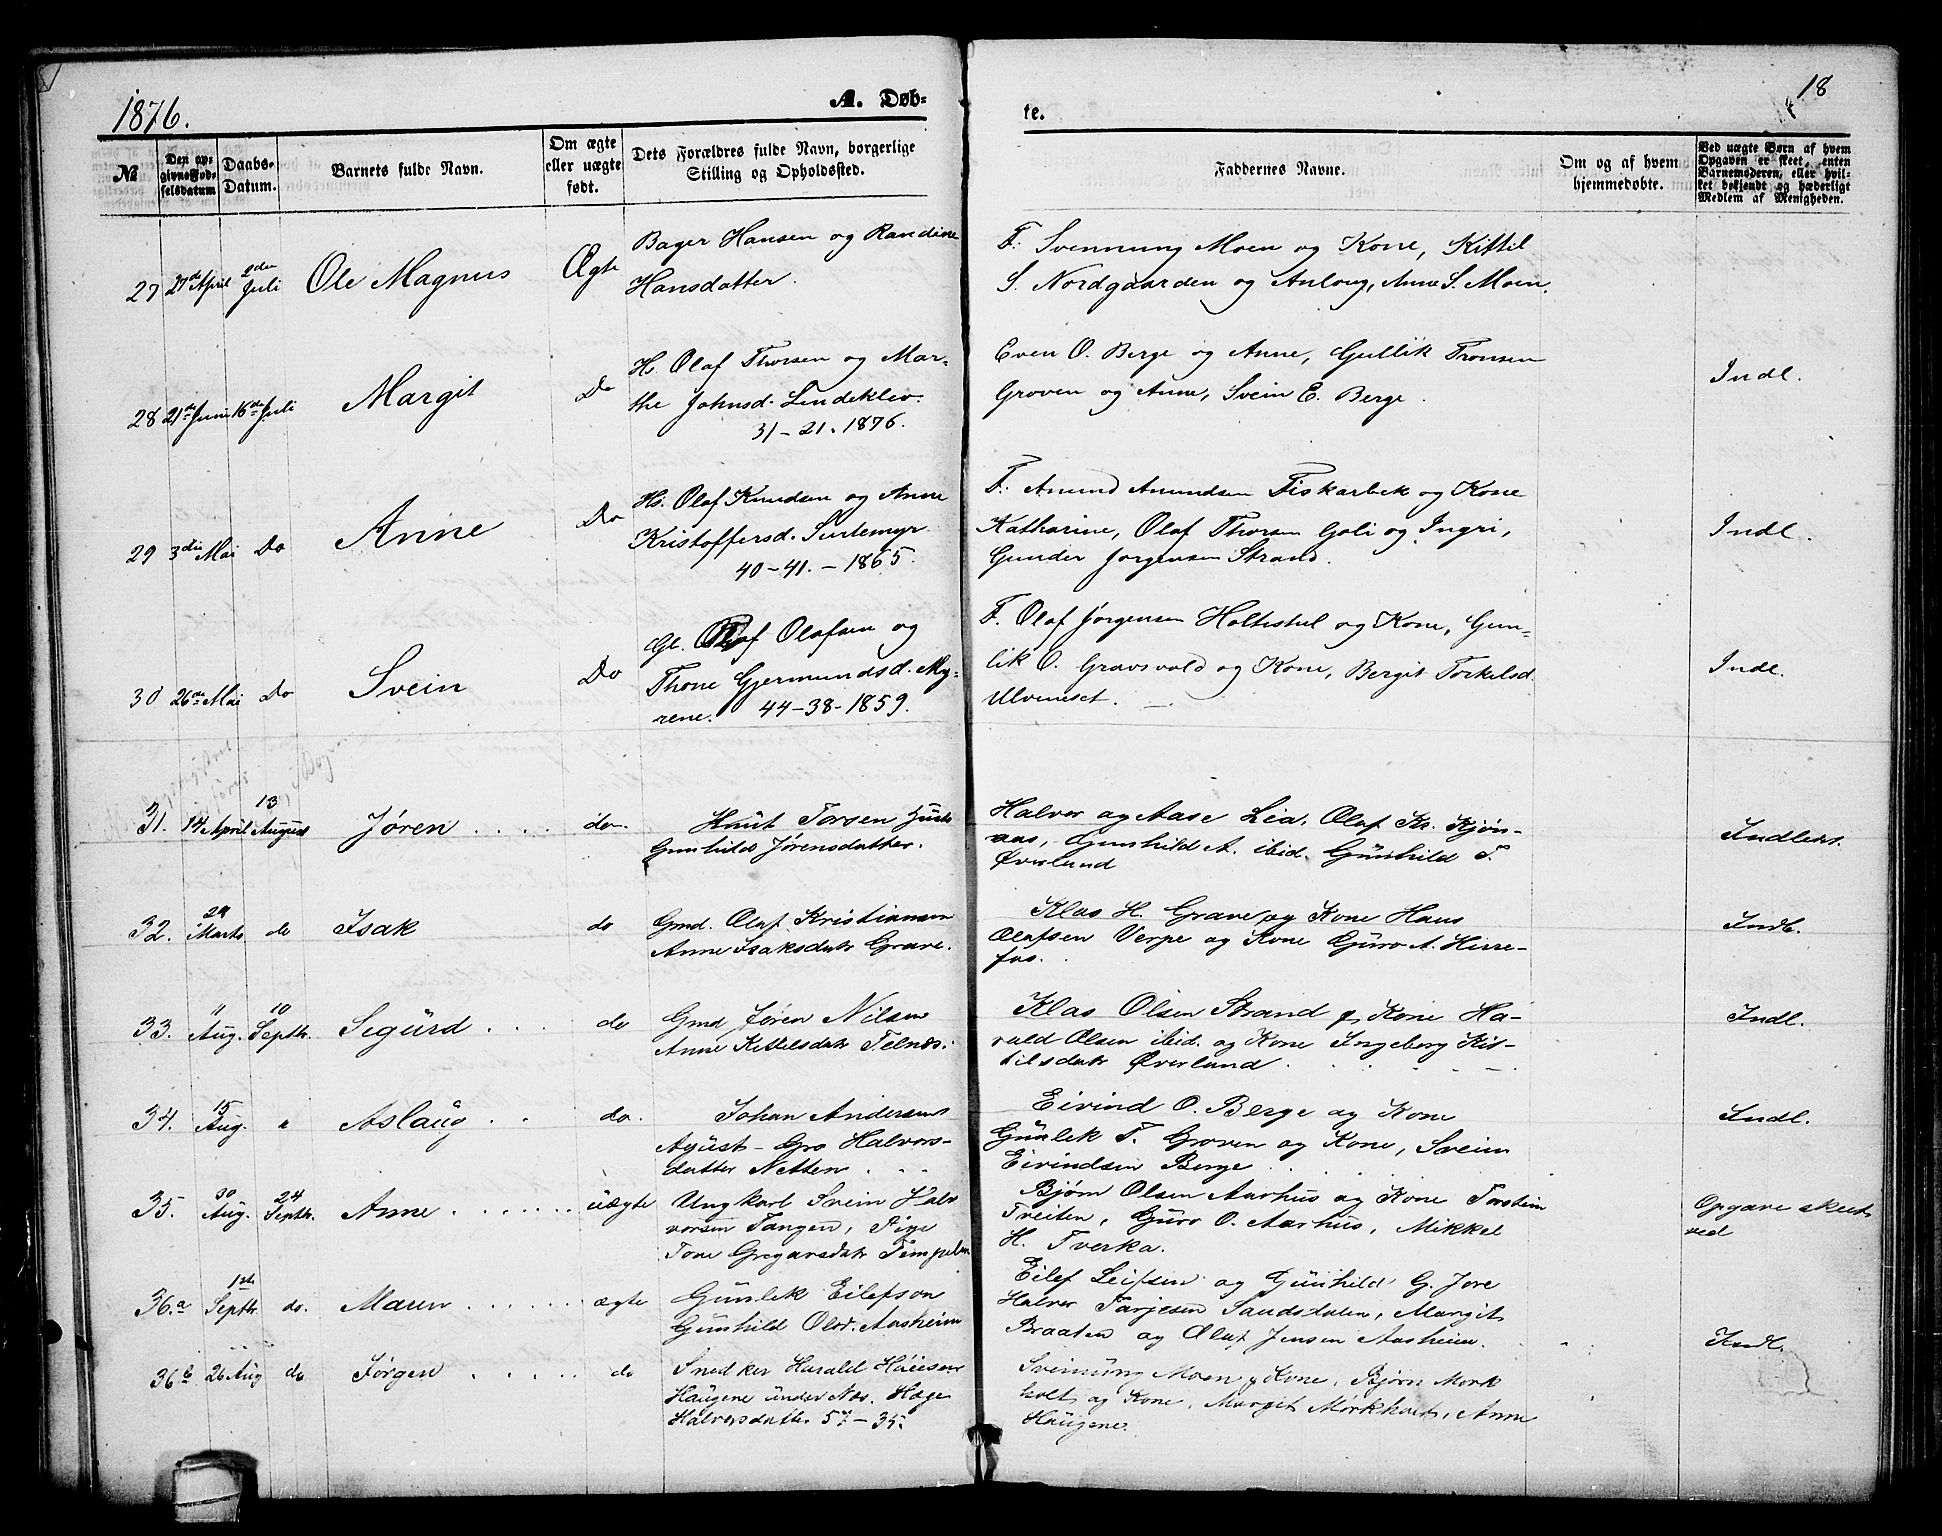 1876.
A. Døb-
te.
18
№
Den op-
givne Fød-
selsdatum
Daabs-
Datum.
Barnets fulde Navn.
Om ægte
eller uægte
født.
Dets Forældres fulde Navn, borgerlige
Stilling og Opholdssted.
Faddernes Navne.
Om og af hvem
hjemmedøbte.
Ved uægte Børn af hvem
Opgaven er skeet, enten
Barnemoderen, eller hvil-
ket bekjendt og hæderligt
Medlem af Menigheden.
27 27de April 2den Juli Ole Magnus Ægte
Bager Hansen og Randine
Hansdatter.
F: Svennung Moen og Kone, Kittil
S. Nordgaarden og Anlaug, Anne S. Moen.
28 21de Juni 16de Juli Margit Do
H. Olaf Thorsen og Mar-
the Johnsd. Lindeklev.
31-21.1876.
Even O. Berge og Anne, Gullik Tronsen
Groven og Anne, Svein E. Berge.
Indl.
29 3die Mai Do Anne Do
Hs. Olaf Knudsen og Anne
Kristoffersd. Surtemyr
40-41.-1865.
F: Amund Amundsen Fiskarbek og Kone
Katharine, Olaf Thorsen Goli og Ingri,
Gunder Jorgensen Strand.
Indl.
30 26de Mai Do Svein Do
Gl. Olaf Olafsen og
Thone Gjermundsd. My-
rene. 44-38-1859.
F. Olaf Jørgensen Holtestul og Kone, Gun-
lik O. Gravsvold og Kone, Bergit Torkelsd.
Ulveneset.
Indl.
31. 14 April 13 August Jøren do.
Knut Torsen
Gunhild Jørensdatter.
Halvor og Aase Lia, Olaf Kr. Kjøn-
aas, Gunhild A. ibid. Gunhild T.
Øverland
Indlem.
32. 29 Marts do Isak do
Gmd. Olaf Kristiansen
Anne Isaksdatr Grave.
Klas H. Grave og Kone Hans
Olafsen Verpe og Kone Guro A. Hisse-
fos.
Indl.
33. 11 Aug. 10 Septbr. Sigurd do
Gmd Jøren Nilsen
Anne Kittilsdatr Telnæs.
Klas Olsen Strand og Kone Ha-
vald Olsen ibid. og Kone Ingeborg Kit-
tilsdatr Øverland
Indl.
34. 15 Aug. " Aslaug do.
Johan Andersen
August- Gro Halvors-
datter Netten
Eivind O. Berge og Kone
Gunlek T. Groven og Kone, Svein
Eivindsen Berge
Indl.
35. 30 Aug. 24 Septbr. Anne uægte
Ungkarl Svein Hal-
vorsen Tangen, Pige
Tone Gregarsdatr Tempelen
Bjørn Olsen Aarhus og Kone Torstein
Treiten, Guro O. Aarhus, Mikkel
H. Tverka.
Opgave skeet
ved
36.a 1ste Septbr. do. Maren ægte
Gunlek Eilefson
Gunhild Olsd. Aasheim
Eilef Leifsen og Gunhild G. Jore
Halvor Tarjesen Sandsdalen, Margit
Braaten og Olaf Jensen Aasheim.
Indl.
36b 26 Aug do Jörgen do
Snedker Harald
Haugene under Næs. Hæge
Halvorsdatter 57-35.
Sveinung Moen og Kone, Bjørn Mørk
holt og Kone, Margit Mørkholt, Anne
Haugene.